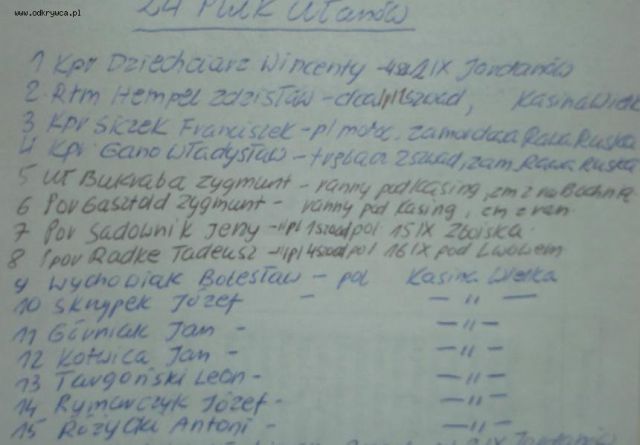 www.odkrywca.pl
24 Pułk Ułanów
1 Kpr Dziechciarz Wincenty - IX Jordanów
2 Rtm Hempel Zdzisław - szwad, Kasina Wielk
3 Kpr Siczek Franciszek - pl motoc. zamordowa Rawa Ruska
4 Kpr Gano Władysław - trębacz 2 szwad, zam Rawa Ruska
5 Wł Bukraba Zygmunt - ranny pod Kasiną, zm z ran Bochnia
6 Por Gasztold Zygmunt - ranny pod Kasiną, zm z ran
7 Por Sadownik Jerzy - 1 szwad pol 15 IX Zboiska
8 Ppor Radke Tadeusz - 4 szwad pol 16 IX pod Lwowem
9 Wychowiak Bolesław - pol Kasina Wielka
10 Skrypek Józef - — " —
11 Górniak Jan - — " —
12 Kotwica Jan - — " —
13 Targoński Leon - — " —
14 Rymarczyk Józef - — " —
15 Różycki Antoni - — " —